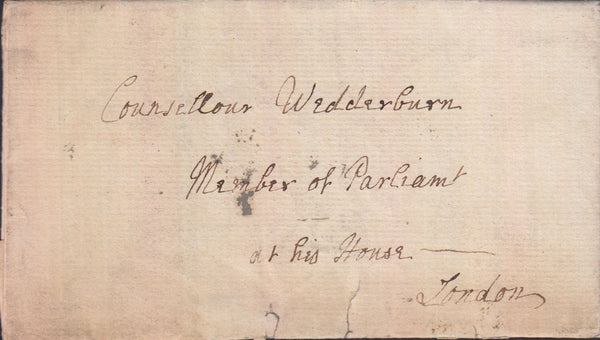 Counsellour Wedderburn
Member of Parliamt
at his House
London